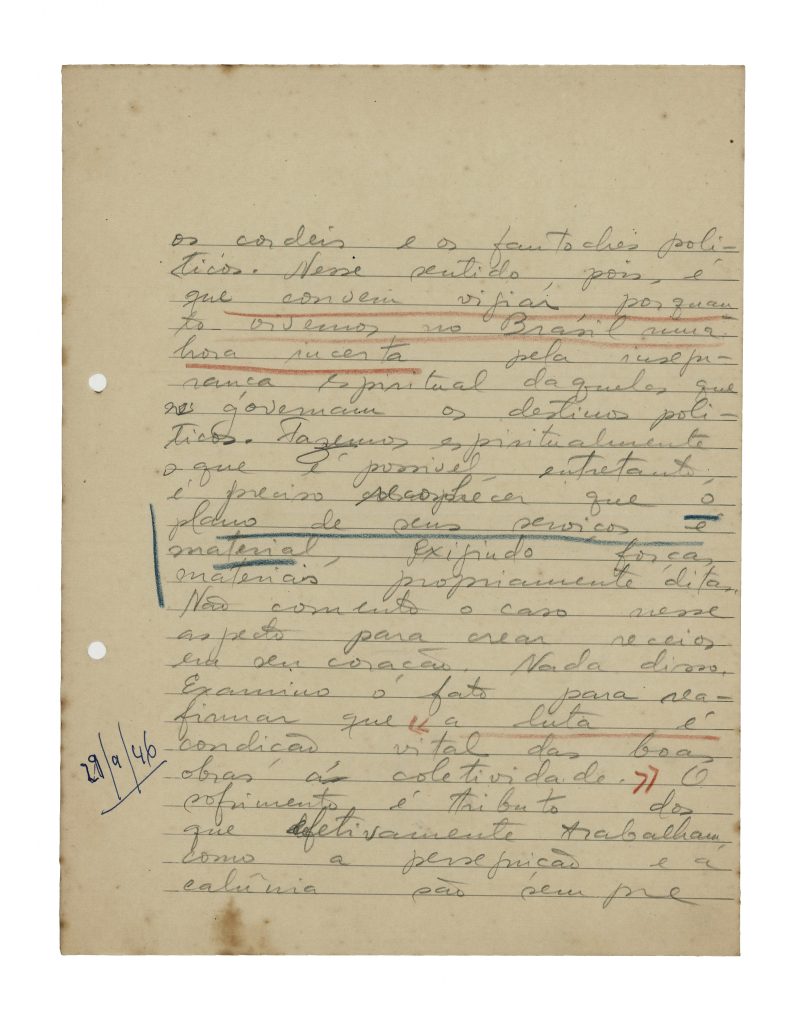 os cordeis e os fantoches poli-
ticos. Nesse sentido, pois, é
que convem vigiar porquan-
to vivemos no Brasil uma
hora incerta pela insegu-
rança espiritual daqueles que
governam os destinos poli-
ticos. Fazemos espiritualmente
o que é possivel, entretanto,
é preciso reconhecer que o
plano de seus serviços é
material, exigindo forças
materiais propriamente ditas.
Não comento o caso nesse
aspecto para crear receios
em seu coração. Nada disso.
Examino o fato para rea-
firmar que "a luta é
condição vital das boas
obras á coletividade." O
sofrimento é tributo dos
que efetivamente trabalham,
como a perseguição e a
calúnia são sempre
29/9/46